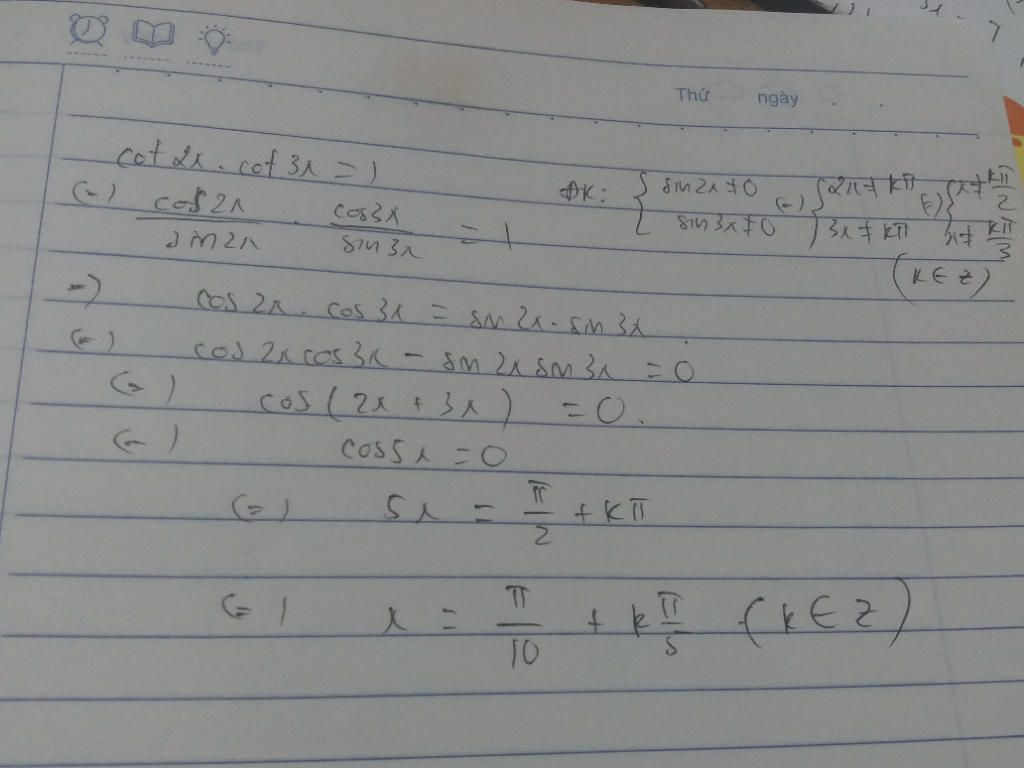 Thứ ngày
cot 2x . cot 3x = 1
ĐK: { sin 2x ≠ 0 (=) { 2x ≠ kπ (=) { x ≠ kπ/2
sin 3x ≠ 0 3x ≠ kπ x ≠ kπ/3
(k ∈ Z)
(=) cos 2x / sin 2x . cos 3x / sin 3x = 1
=) cos 2x . cos 3x = sin 2x . sin 3x
(=) cos 2x cos 3x - sin 2x sin 3x = 0
(=) cos (2x + 3x) = 0.
(=) cos 5x = 0
(=) 5x = π/2 + kπ
(=) x = π/10 + k π/5 (k ∈ Z)